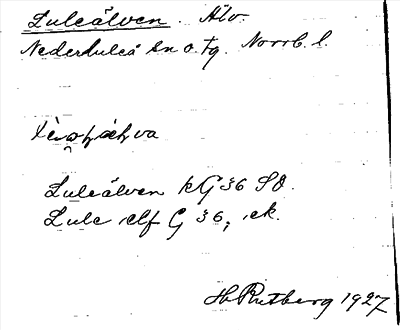 Luleälven. Älv.
Nederluleå sn o. tg. Norrb. l.
Luleälven kG 36 SO.
Lule elf G 36, ek.
H. Rutberg 1927